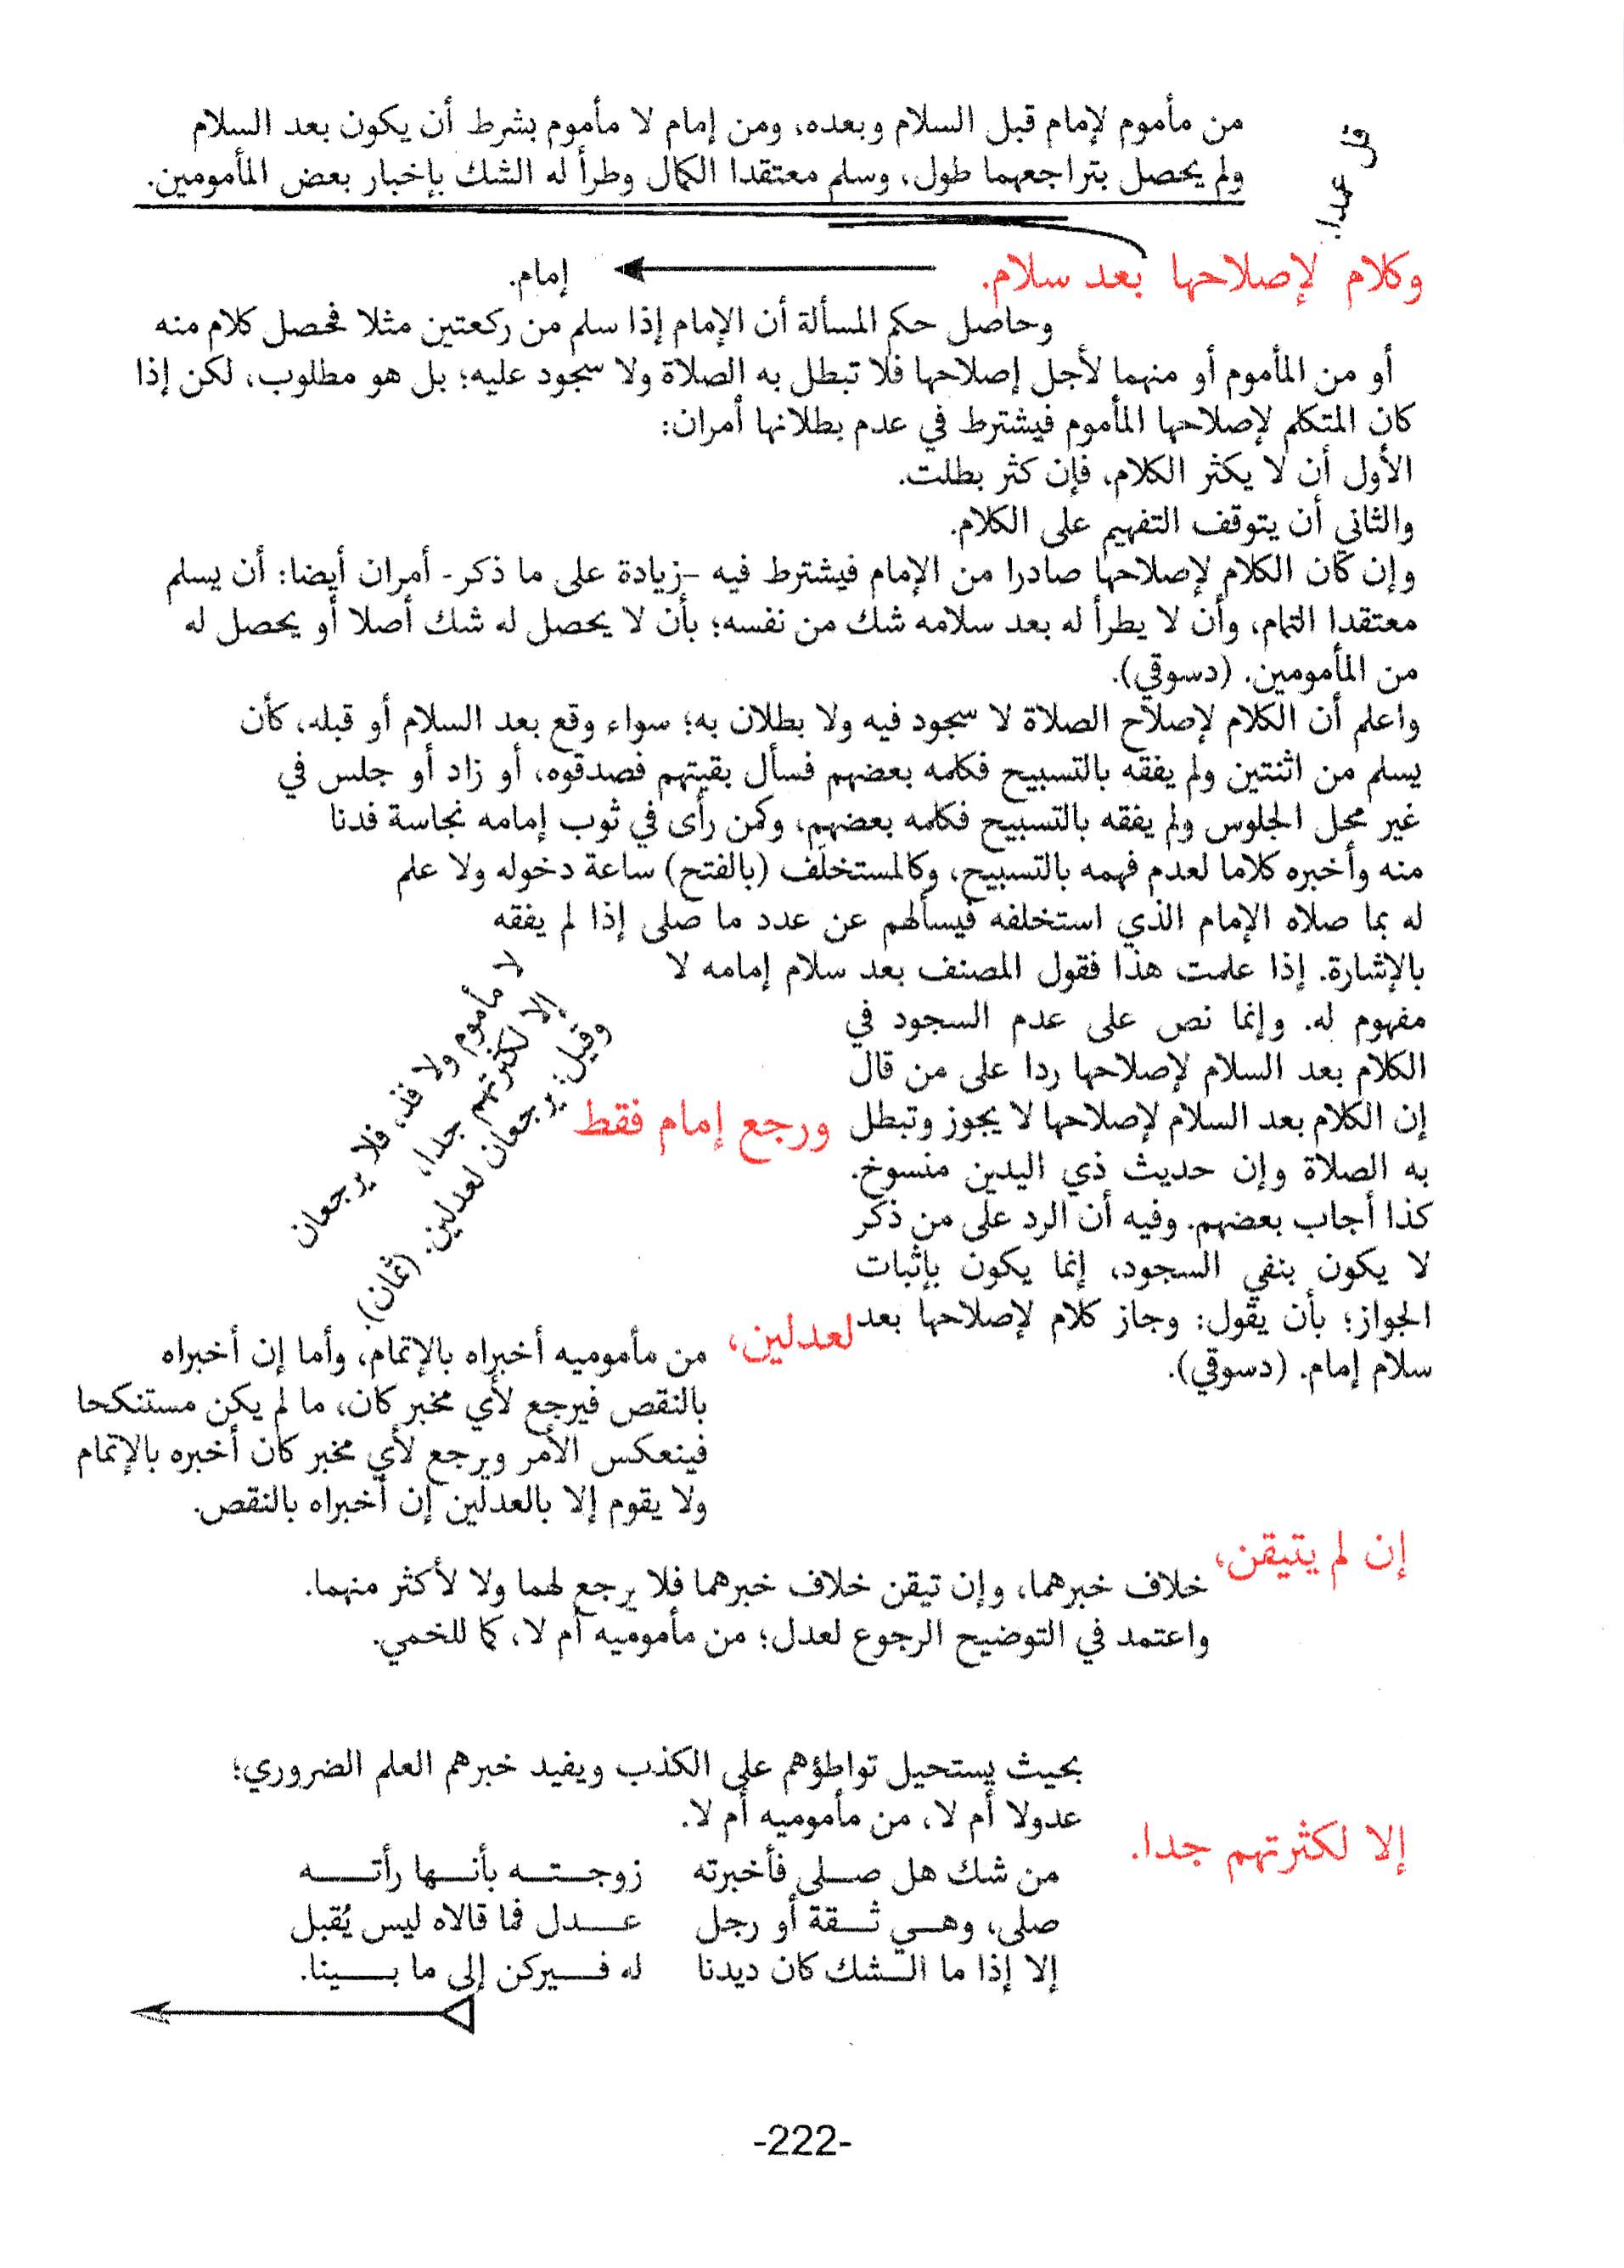 من مأموم لإمام قبل السلام وبعده، ومن إمام لا مأموم بشرط أن يكون بعد السلام
ولم يحصل بتراجعهما طول، وسلم معتقدا الكمال وطرأ له الشك بإخبار بعض المأمومين.
قل عمدا.
وكلام لإصلاحها بعد سلام.
إمام.
وحاصل حكم المسألة أن الإمام إذا سلم من ركعتين مثلا فحصل كلام منه
أو من المأموم أو منهما لأجل إصلاحها فلا تبطل به الصلاة ولا سجود عليه؛ بل هو مطلوب، لكن إذا
كان المتكلم لإصلاحها المأموم فيشترط في عدم بطلانها أمران:
الأول أن لا يكثر الكلام، فإن كثر بطلت.
والثاني أن يتوقف التفهيم على الكلام.
وإن كان الكلام لإصلاحها صادرا من الإمام فيشترط فيه -زيادة على ما ذكر- أمران أيضا: أن يسلم
معتقدا التمام، وأن لا يطرأ له بعد سلامه شك من نفسه؛ بأن لا يحصل له شك أصلا أو يحصل له
من المأمومين. (دسوقي).
واعلم أن الكلام لإصلاح الصلاة لا سجود فيه ولا بطلان به؛ سواء وقع بعد السلام أو قبله، كأن
يسلم من اثنتين ولم يفقه بالتسبيح فكلمه بعضهم فسأل بقيتهم فصدقوه، أو زاد أو جلس في
غير محل الجلوس ولم يفقه بالتسبيح فكلمه بعضهم، وكمن رأى في ثوب إمامه نجاسة فدنا
منه وأخبره كلاما لعدم فهمه بالتسبيح، وكالمستخلَف (بالفتح) ساعة دخوله ولا علم
له بما صلاه الإمام الذي استخلفه فيسألهم عن عدد ما صلى إذا لم يفقه
بالإشارة. إذا علمت هذا فقول المصنف بعد سلام إمامه لا
مفهوم له. وإنما نص على عدم السجود في
الكلام بعد السلام لإصلاحها ردا على من قال
إن الكلام بعد السلام لإصلاحها لا يجوز وتبطل
به الصلاة وإن حديث ذي اليدين منسوخ.
كذا أجاب بعضهم. وفيه أن الرد على من ذكر
لا يكون بنفي السجود، إنما يكون بإثبات
الجواز؛ بأن يقول: وجاز كلام لإصلاحها بعد
سلام إمام. (دسوقي).
ورجع إمام فقط
لا مأموم ولا فذ، فلا يرجعان
إلا لكثرتهم جدا،
وقيل: يرجعان لعدلين. (عُمان).
لعدلين،
من مأموميه أخبراه بالإتمام، وأما إن أخبراه
بالنقص فيرجع لأي مخبر كان، ما لم يكن مستنكحا
فينعكس الأمر ويرجع لأي مخبر كان أخبره بالإتمام
ولا يقوم إلا بالعدلين إن أخبراه بالنقص.
إن لم يتيقن،
خلاف خبرهما، وإن تيقن خلاف خبرهما فلا يرجع لهما ولا لأكثر منهما.
واعتمد في التوضيح الرجوع لعدل؛ من مأموميه أم لا، كما للخمي.
بحيث يستحيل تواطؤهم على الكذب ويفيد خبرهم العلم الضروري؛
عدولا أم لا، من مأموميه أم لا.
إلا لكثرتهم جدا.
من شك هل صلى فأخبرته زوجته بأنها رأته
صلى، وهي ثقة أو رجل عدل فما قالاه ليس يُقبل
إلا إذا ما الشك كان ديدنا له فيركن إلى ما بينا.
-222-